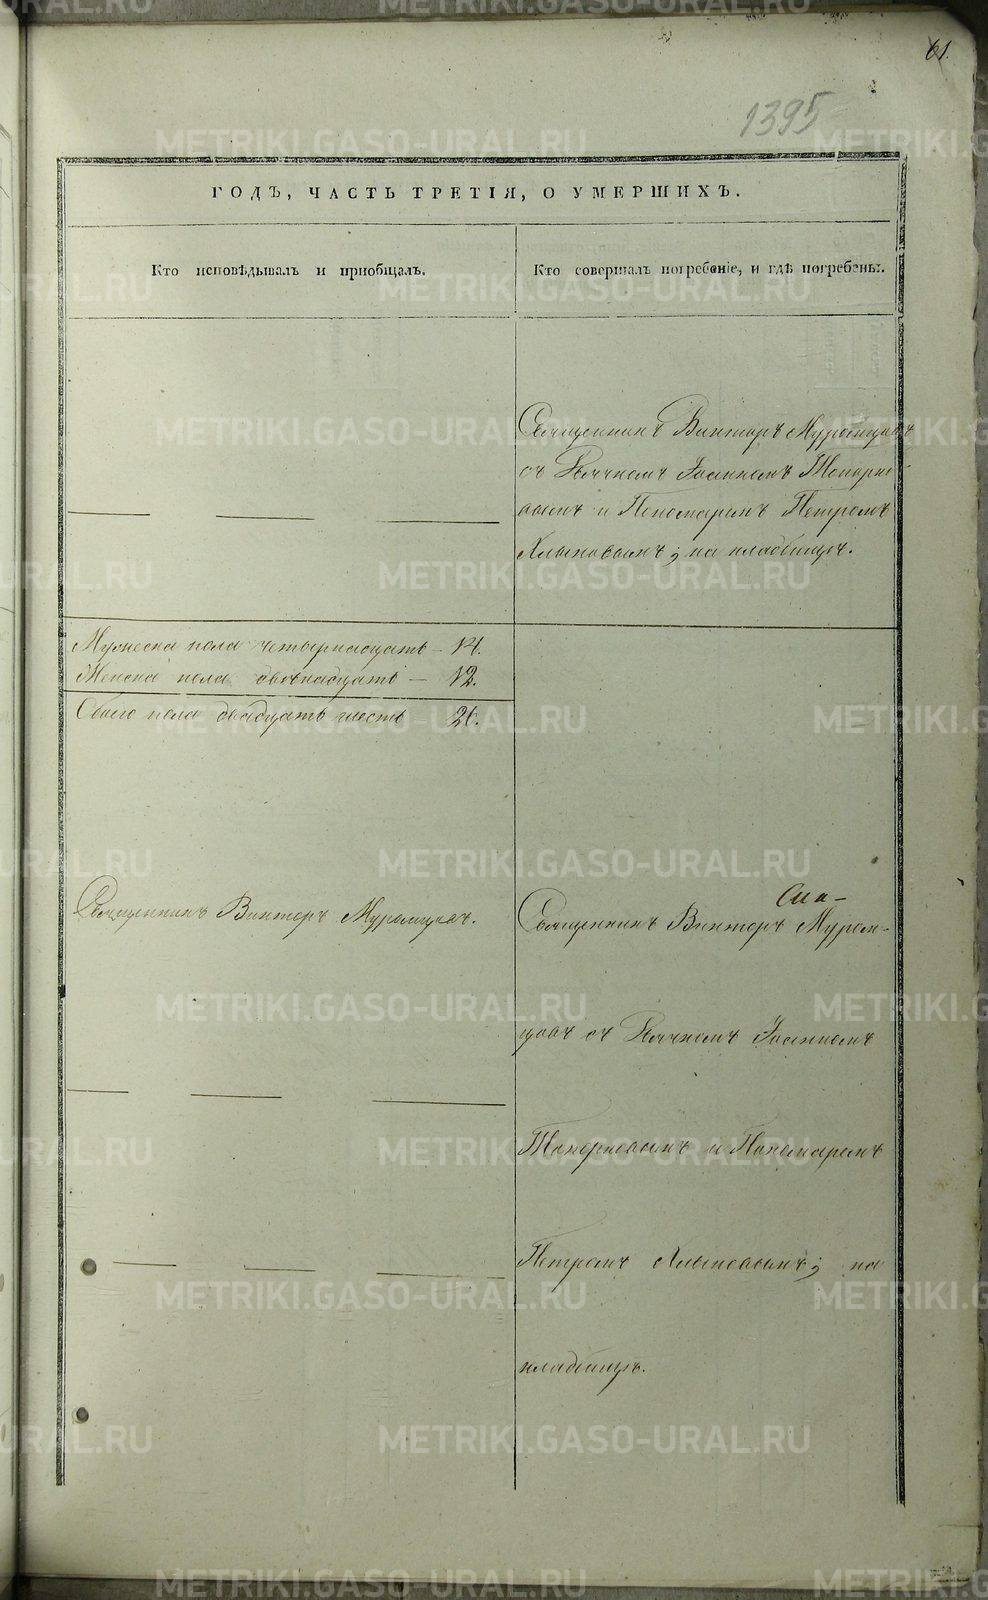 61.
1395
ГОДЪ, ЧАСТЬ ТРЕТІЯ, О УМЕРШИХЪ.
Кто исповѣдывалъ и приобщалъ.
Кто совершалъ погребеніе, и гдѣ погребены.
Священникъ Викторъ Муромцовъ
съ Дьячкомъ Іоанномъ Топорко
вымъ и Пономаремъ Петромъ
Хлыновымъ; на кладбищѣ.
Мужеска пола четырнадцать – 14.
Женска пола двѣнадцать – 12.
Обоего пола двадцать шесть 26.
Священникъ Викторъ Муромцовъ.
Священникъ Викторъ Муром-
цовъ съ Дьячкомъ Іоанномъ
Топорковымъ и Пономаремъ
Петромъ Хлыновымъ; на
кладбищѣ.
METRIKI.GASO-URAL.RU